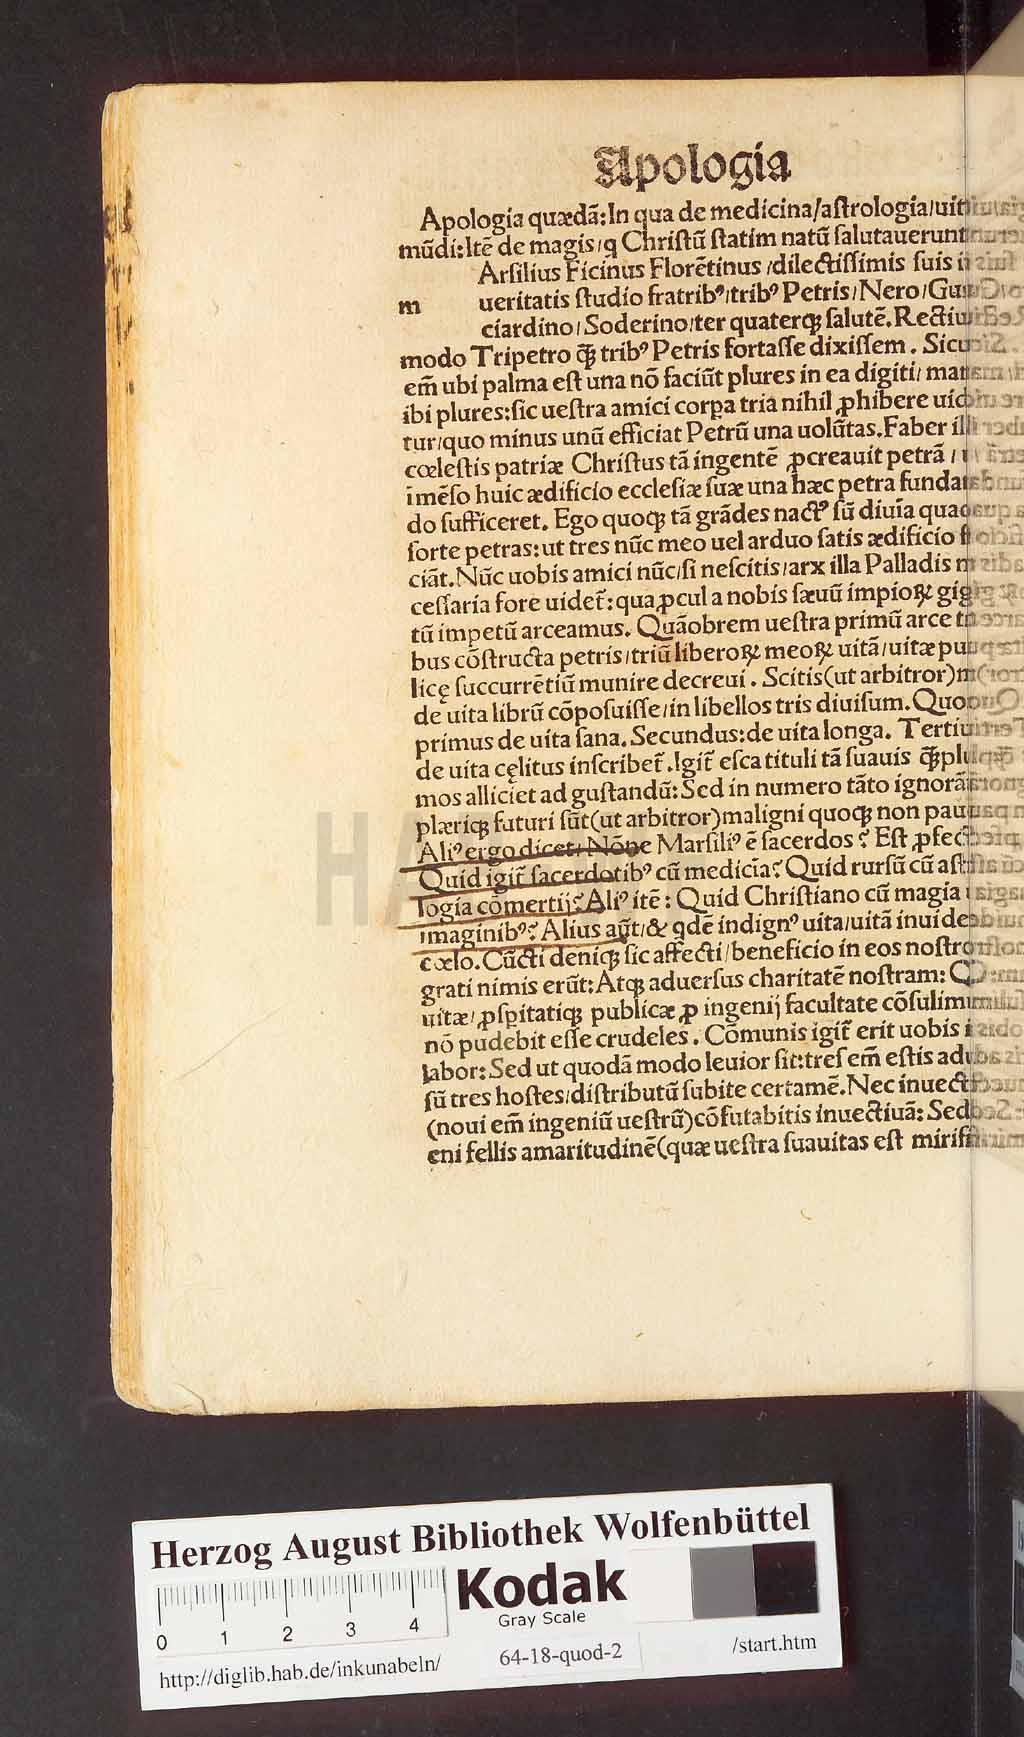 Apologia
Apologia quædã: In qua de medicina/astrologia/uit
mũdi: Itẽ de magis/q Christũ statim natũ salutauerunt
Arsilius Ficinus Florẽtinus/dilectissimis suis i
m ueritatis studio fratribꝰ/tribꝰ Petris/Nero/Gu
ciardino/Soderino/ter quaterqꝫ salutẽ. Rectiu
modo Tripetro q̃ꝫ tribꝰ Petris fortasse dixissem. Sicu
em̃ ubi palma est una nõ faciũt plures in ea digiti/ man
ibi plures: sic uestra amici corpa tria nihil ꝓhibere uid
tur/quo minus unũ efficiat Petrũ una uolũtas. Faber ill
cœlestis patriæ Christus tã ingentẽ ꝓcreauit petrã/
imẽso huic ædificio ecclesiæ suæ una hæc petra funda
do sufficeret. Ego quoqꝫ tã grãdes nactꝰ sũ diuĩa qua
sorte petras: ut tres nũc meo uel arduo satis ædificio
ciãt. Nũc uobis amici nũc/si nescitis/arx illa Palladis
cessaria fore uidet̃: qua ꝓcul a nobis sæuũ impioꝝ gig
tũ impetũ arceamus. Quãobrem uestra primũ arce t
bus cõstructa petris/triũ liberoꝝ meoꝝ uitã/uitæ pu
licę succurrẽtiũ munire decreui. Scitis(ut arbitror)m
de uita librũ cõposuisse/in libellos tris diuisum. Quo
primus de uita sana. Secundus: de uita longa. Tertiu
de uita cęlitus inscribet̃. Igit̃ esca tituli tã suauis q̃ꝫplu
mos alliciet ad gustandũ: Sed in numero tãto ignorã
plæriqꝫ futuri sũt(ut arbitror)maligni quoqꝫ non pau
Aliꝰ ergo dicet: Nõne Marsiliꝰ ẽ sacerdos? Est ꝓfect
Quid igit̃ sacerdotibꝰ cũ medicĩa? Quid rursũ cũ ast
logia cõmertij? Aliꝰ itẽ: Quid Christiano cũ magia
imaginibꝰ? Alius aũt/& qdẽ indignꝰ uita/uitã inuide
cœlo. Cũcti deniqꝫ sic affecti/beneficio in eos nostro
grati nimis erũt: Atqꝫ aduersus charitatẽ nostram: Q
uitæ/ꝓspitatiqꝫ publicæ ꝓ ingenij facultate cõsulim
nõ pudebit esse crudeles. Cõmunis igit̃ erit uobis
labor: Sed ut quodã modo leuior sit: tres em̃ estis adu
sũ tres hostes/distributũ subite certamẽ. Nec inuect
(noui em̃ ingeniũ uestrũ)cõfutabitis inuectiuã: Sed
eni fellis amaritudinẽ(quæ uestra suauitas est mirifi
HAB
Herzog August Bibliothek Wolfenbüttel
Kodak
Gray Scale
0 1 2 3 4
http://diglib.hab.de/inkunabeln/ 64-18-quod-2 /start.htm